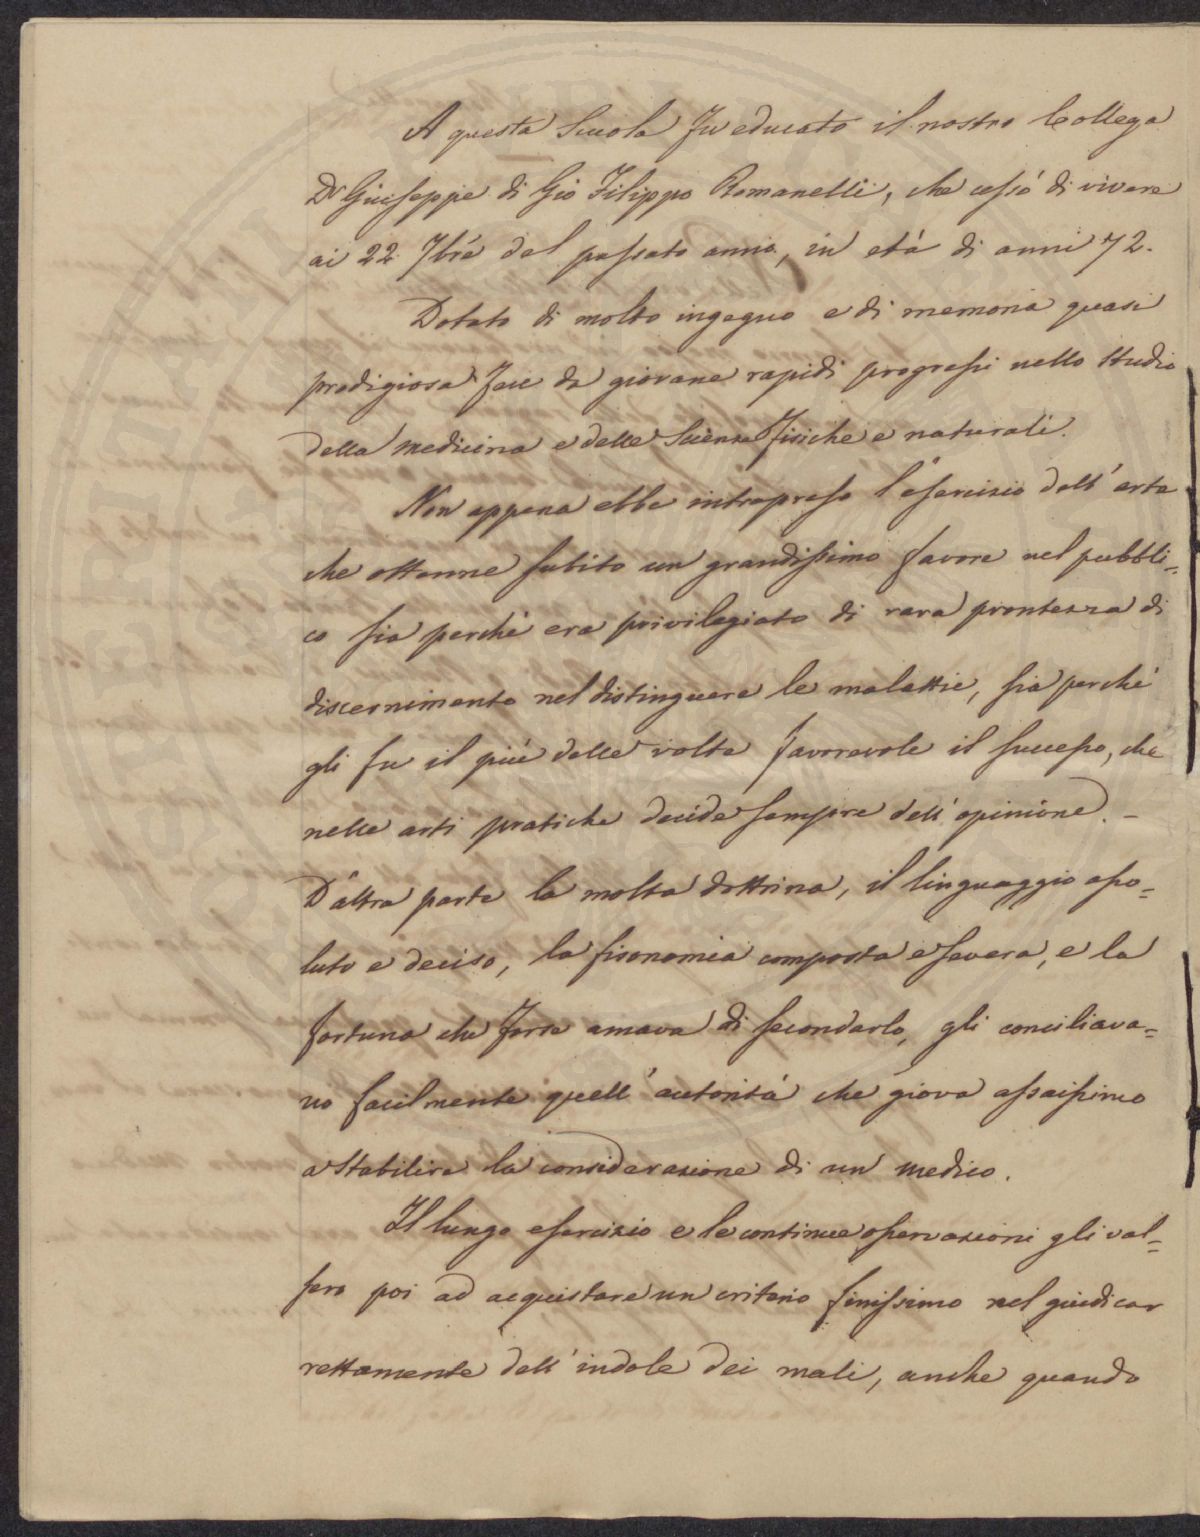 A questa Scuola fu educato il nostro Collega
Dr Giuseppe di Gio Filippo Romanelli, che cessò di vivere
ai 22 7bre del passato anno, in età di anni 72.
Dotato di molto ingegno e di memoria quasi
prodigiosa fece da giovane rapidi progressi nello studio
della medicina e delle Scienze fisiche e naturali.
Non appena ebbe intrapreso l'esercizio dell'arte
che ottenne subito un grandissimo favore nel pubbli=
co sia perchè era privilegiato di rara prontezza di
discernimento nel distinguere le malattie, sia perchè
gli fu il più delle volte favorevole il successo, che
nelle arti pratiche decide sempre dell'opinione. –
D'altra parte la molta dottrina, il linguaggio asso=
luto e deciso, la fisonomia composta e severa, e la
fortuna che forse amava di secondarlo, gli conciliava=
no facilmente quell'autorità che giova assaissimo
a stabilire la considerazione di un medico.
Il lungo esercizio e le continue osservazioni gli val=
sero poi ad acquistare un criterio finissimo nel giudicar
rettamente dell'indole dei mali, anche quando